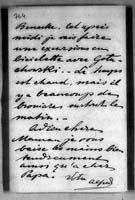 764
Benecke. Cet après
midi je vais faire
une excursion en
bicyclette avec Gote-
chovski. Le temps
est chaud, mais il
y a beaucoup de
brouillard surtout les
matins.
Adieu chère
Maman, je vous
baise les mains bien
tendrement
ainsi qu'à cher
Papa!
votre Alfred